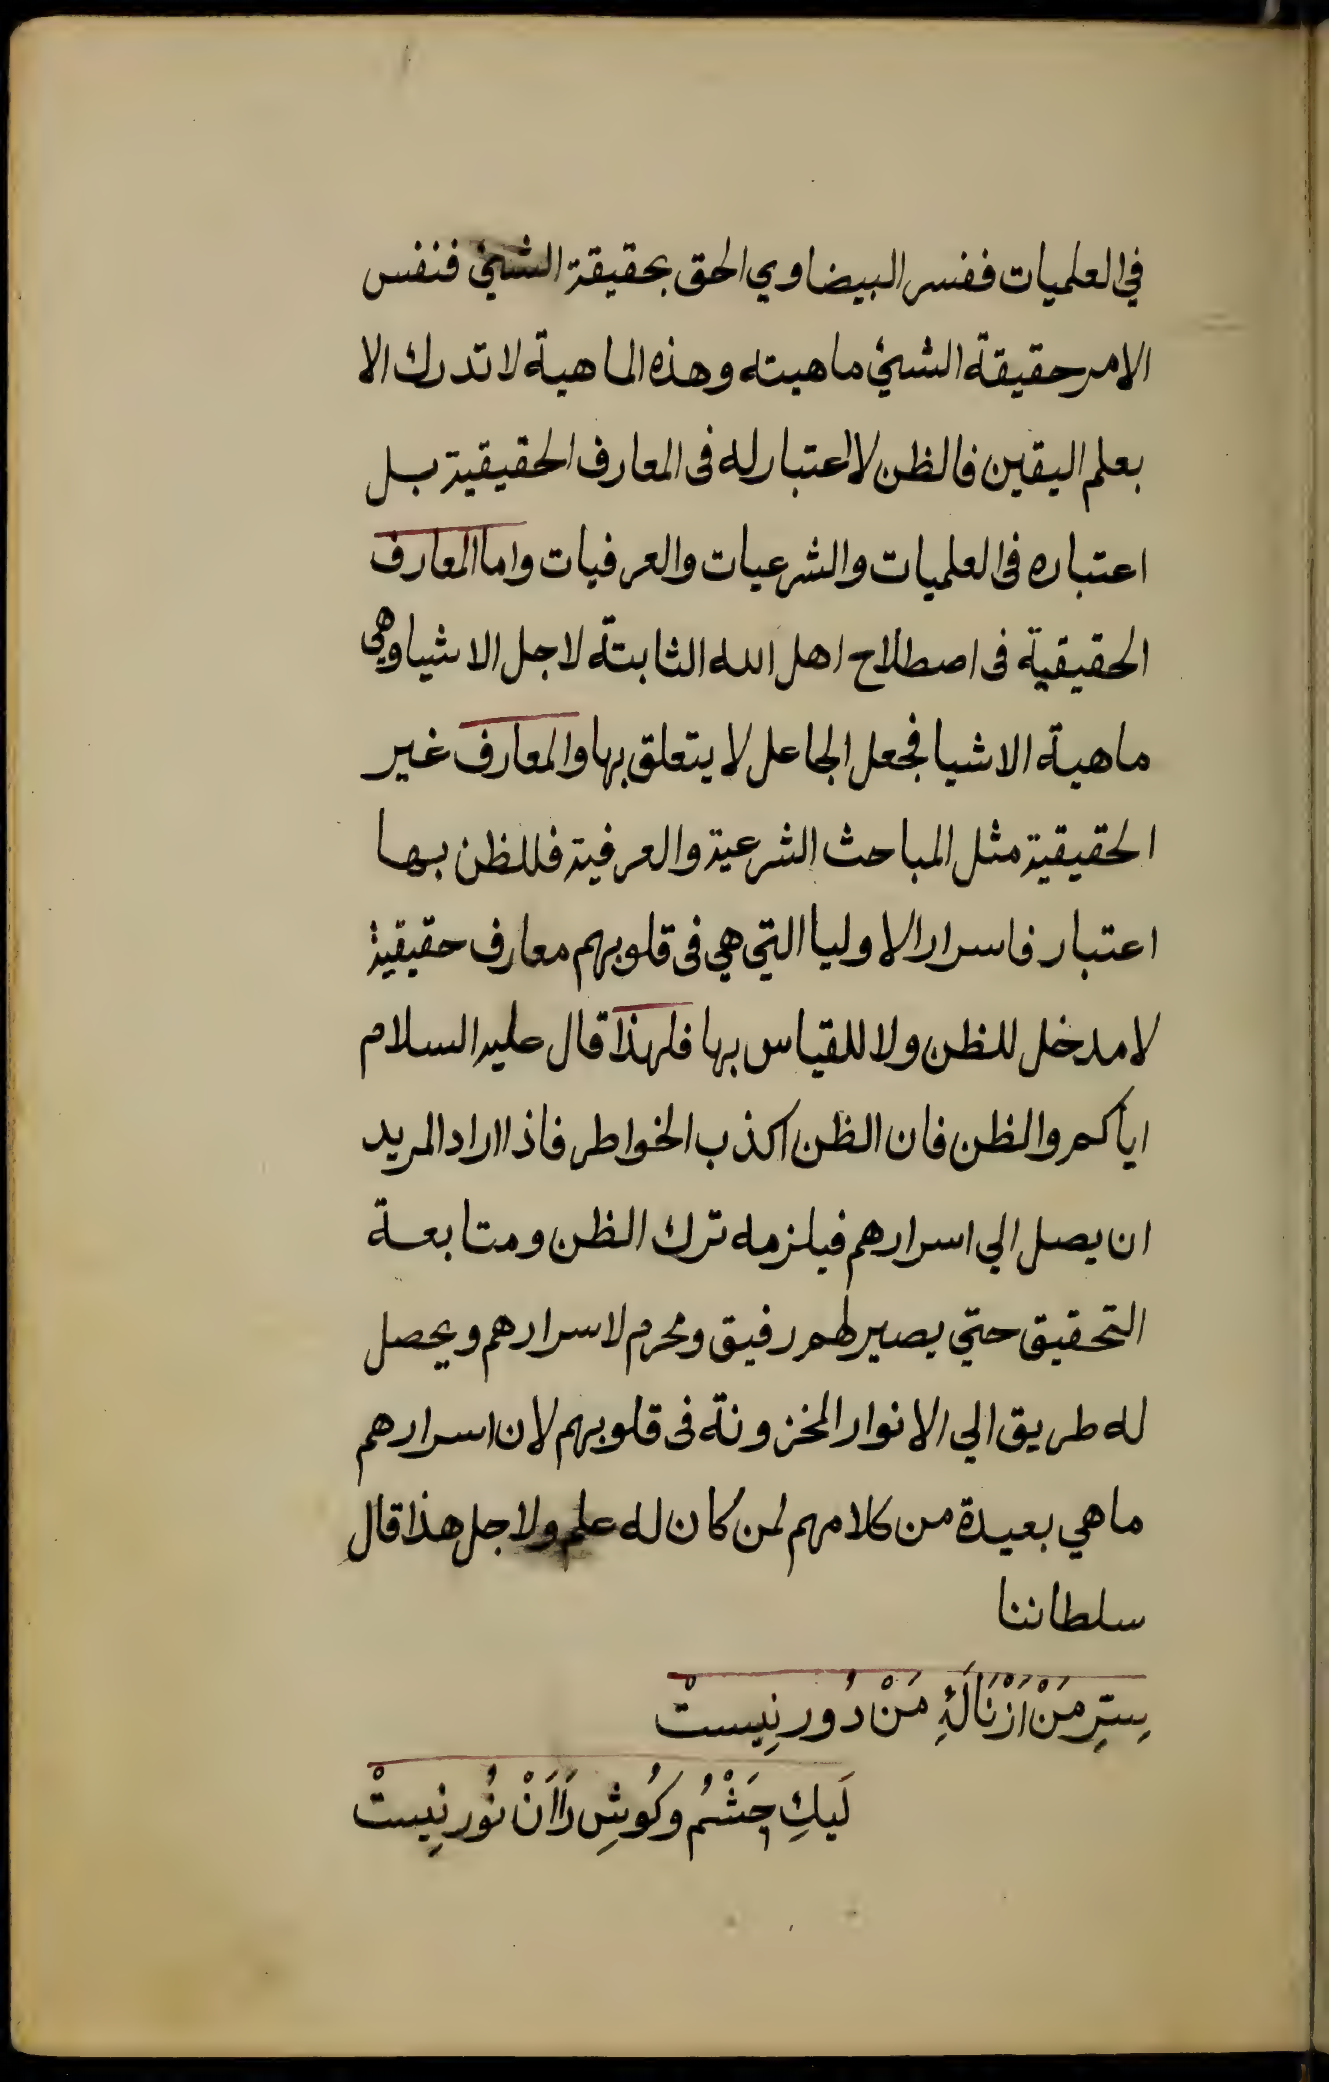 في العلميات ففسر البيضاوي الحق بحقيقة الشيئ فنفس
الامر حقيقة الشيئ ماهيته وهذه الماهية لا تدرك الا
بعلم اليقين فالظن لا اعتبار له فى المعارف الحقيقية بل
اعتباره فى العلميات والشرعيات والعرفيات واما المعارف
الحقيقية فى اصطلاح اهل الله الثابتة لاجل الاشيا وهي
ماهية الاشيا فجعل الجاعل لا يتعلق بها والمعارف غير
الحقيقية مثل المباحث الشرعية والعرفية فللظن بها
اعتبار فاسرار الاوليا التي هي فى قلوبهم معارف حقيقية
لا مدخل للظن ولا للقياس بها فلهذا قال عليه السلام
اياكم والظن فان الظن اكذب الخواطر فاذا اراد المريد
ان يصل الي اسرارهم فيلزمه ترك الظن ومتابعة
التحقيق حتي يصير لهم رفيق ومحرم لاسرارهم ويحصل
له طريق الي الانوار المخزونة فى قلوبهم لان اسرارهم
ما هي بعيدة من كلامهم لمن كان له علم ولاجل هذا قال
سلطاننا
سِتِرِ مَنْ اَزْ نَالَۀِ مَنْ دُور نِيستْ
لَيكِ چَشْمُ وكُوشِ رَا اَنْ نُور نِيستْ